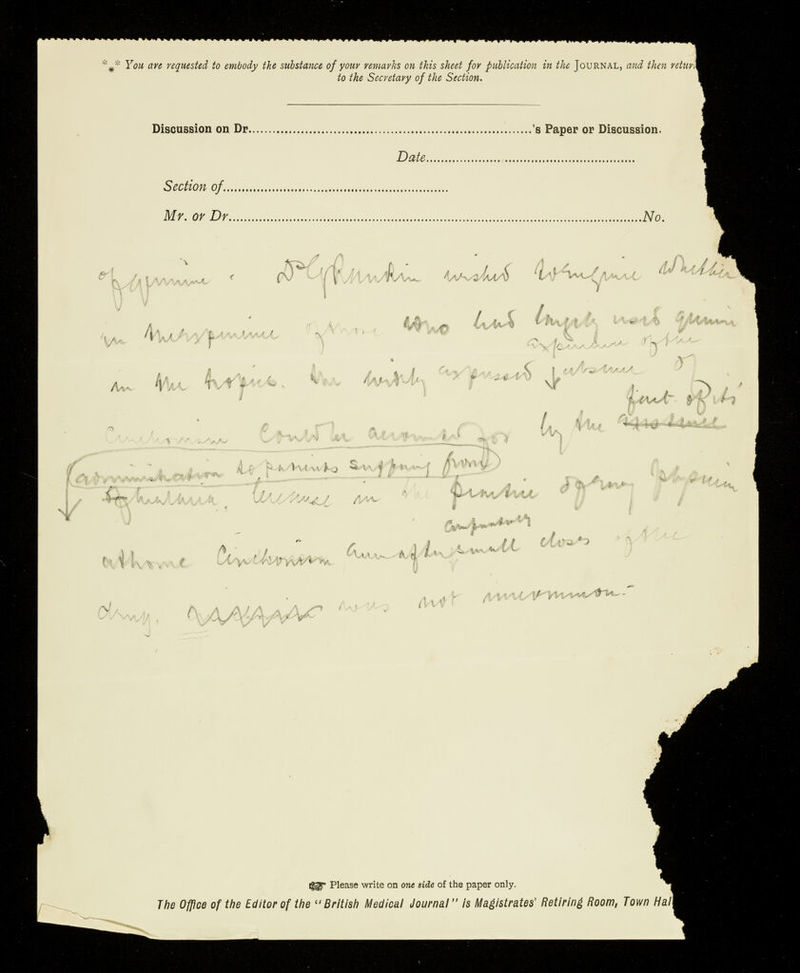 *** You are requested to embody the substance of your remarks on this sheet for publication in the JOURNAL, and then retur
to the Secretary of the Section.
Discussion on Dr.'s Paper or Discussion.
Date
Section of
Mr. or Dr. No.
of quinine Dr wished to enquire whether
in the experience of those who had largely used quinine
experience of the
in the tropics. the widely expressed absence of
Cinchonism could be accounted for by the fact of its
administration to patients suffering from
malaria, because in the practice of many physicians
comparatively
at home Cinchonism even after small doses of the
drug, was not uncommon.-
Please write on one side of the paper only.
The Office of the Editor of the "British Medical Journal" is Magistrates' Retiring Room, Town Hal